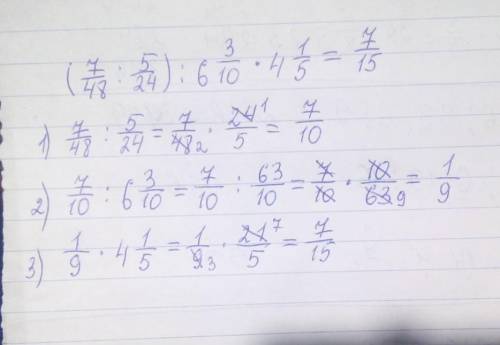 (7/48 : 5/24) : 6 3/10 · 4 1/5 = 7/15
1) 7/48 : 5/24 = 7/48 2 · 24 1/5 = 7/10
2) 7/10 : 6 3/10 = 7/10 : 63/10 = 7/10 · 10/63 9 = 1/9
3) 1/9 · 4 1/5 = 1/9 3 · 21 7/5 = 7/15